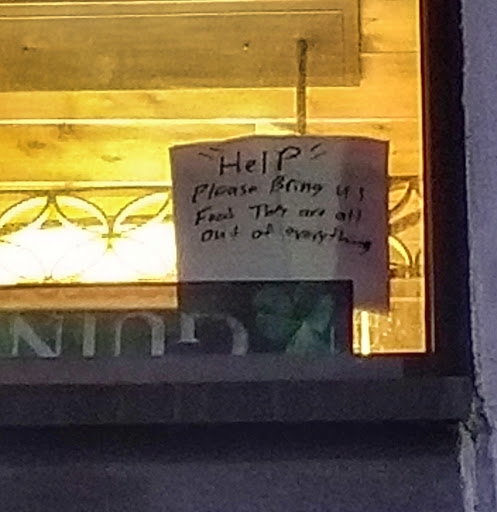 "Help"
Please Bring us
Food They are all
out of everything
GUIN